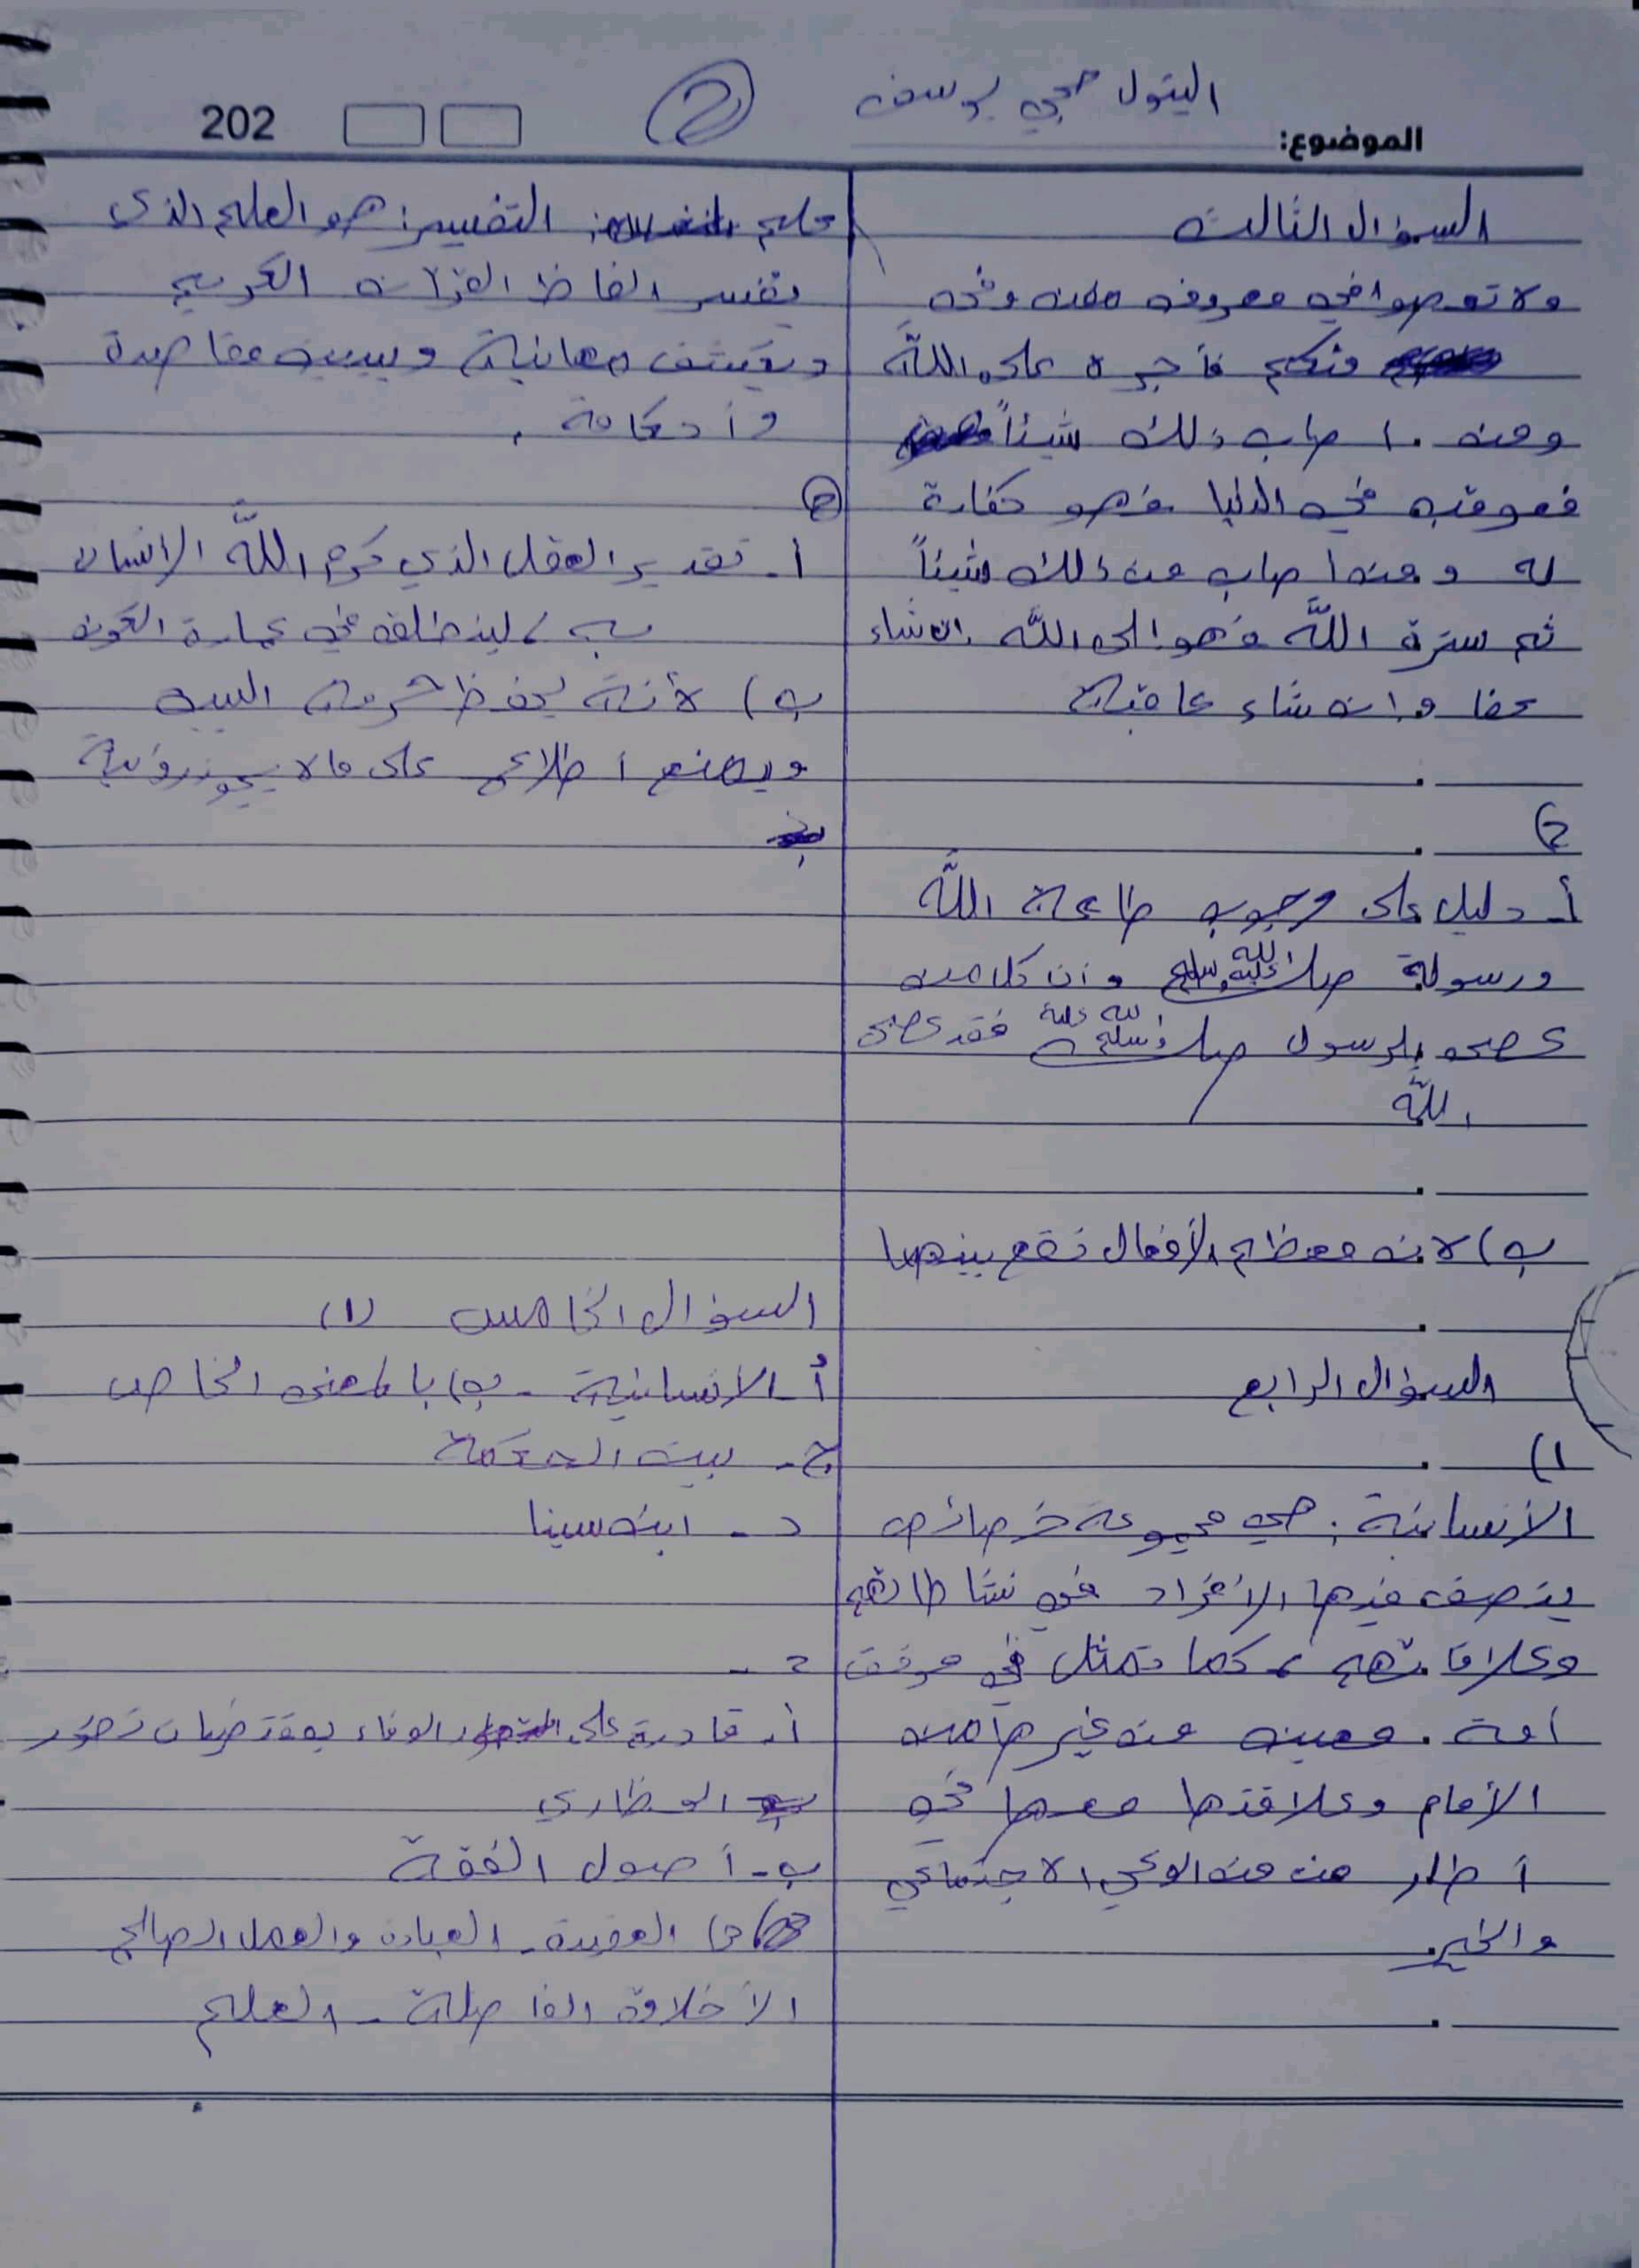 البتول حجي يوسف
2
202
الموضوع:
السؤال الثالث
ولا تعصوا في معروف فمن وفى
منكم فأجره على اللّه
ومن اصاب ذلك شيئاً
فعوقب في الدنيا فهو كفارة
له ومن أصاب من ذلك شيئاً
ثم سترة اللّه فهو إلى اللّه ان شاء
عفا وان شاء عاقبة
2)
أ- دليل على وجوب طاعة اللّه
ورسولة صلى الله عليه وسلم وأن كلا من
عصى الرسول صلى الله عليه وسلم فقد عصى
اللّه
ب) لان معظم الأفعال تقع بينهما
السؤال الرابع
1)
الأنسانية: هي مجموعة خصائص
يتصف فيها الأفراد في نشاطاتهم
وعلاقاتهم، كما تمثل في موقف
امة. معينه من غيرها من
الأمام وعلاقتها معها في
أطار من من الوعي الاجتماعي
والخير.
علم التفسير: هو العلم الذي
يفسر الفاظ القرآن الكريم
ويكشف معانية ويبين مقاصدة
وأحكامة.
2
أ- تقدير العقل الذي كرم اللّه الإنسان
به، لينطلق في عمارة الكون
ب) لأنة يحفظ حرمة البيت
ويمنع أطلاع على مالا يجوز رؤيية
السؤال الخامس (1)
أ- الأنسانية - ب) بالمعنى الخاص
ج- بيت الحكمة
د- ابن سينا
2 -
أ- قادرة على الوفاء بمقتضيات تطور
الحضاري
ب- أصول الفقة
3) العقيدة - العبادة والعمل الصالح
الأخلاق الفاضلة - العلم